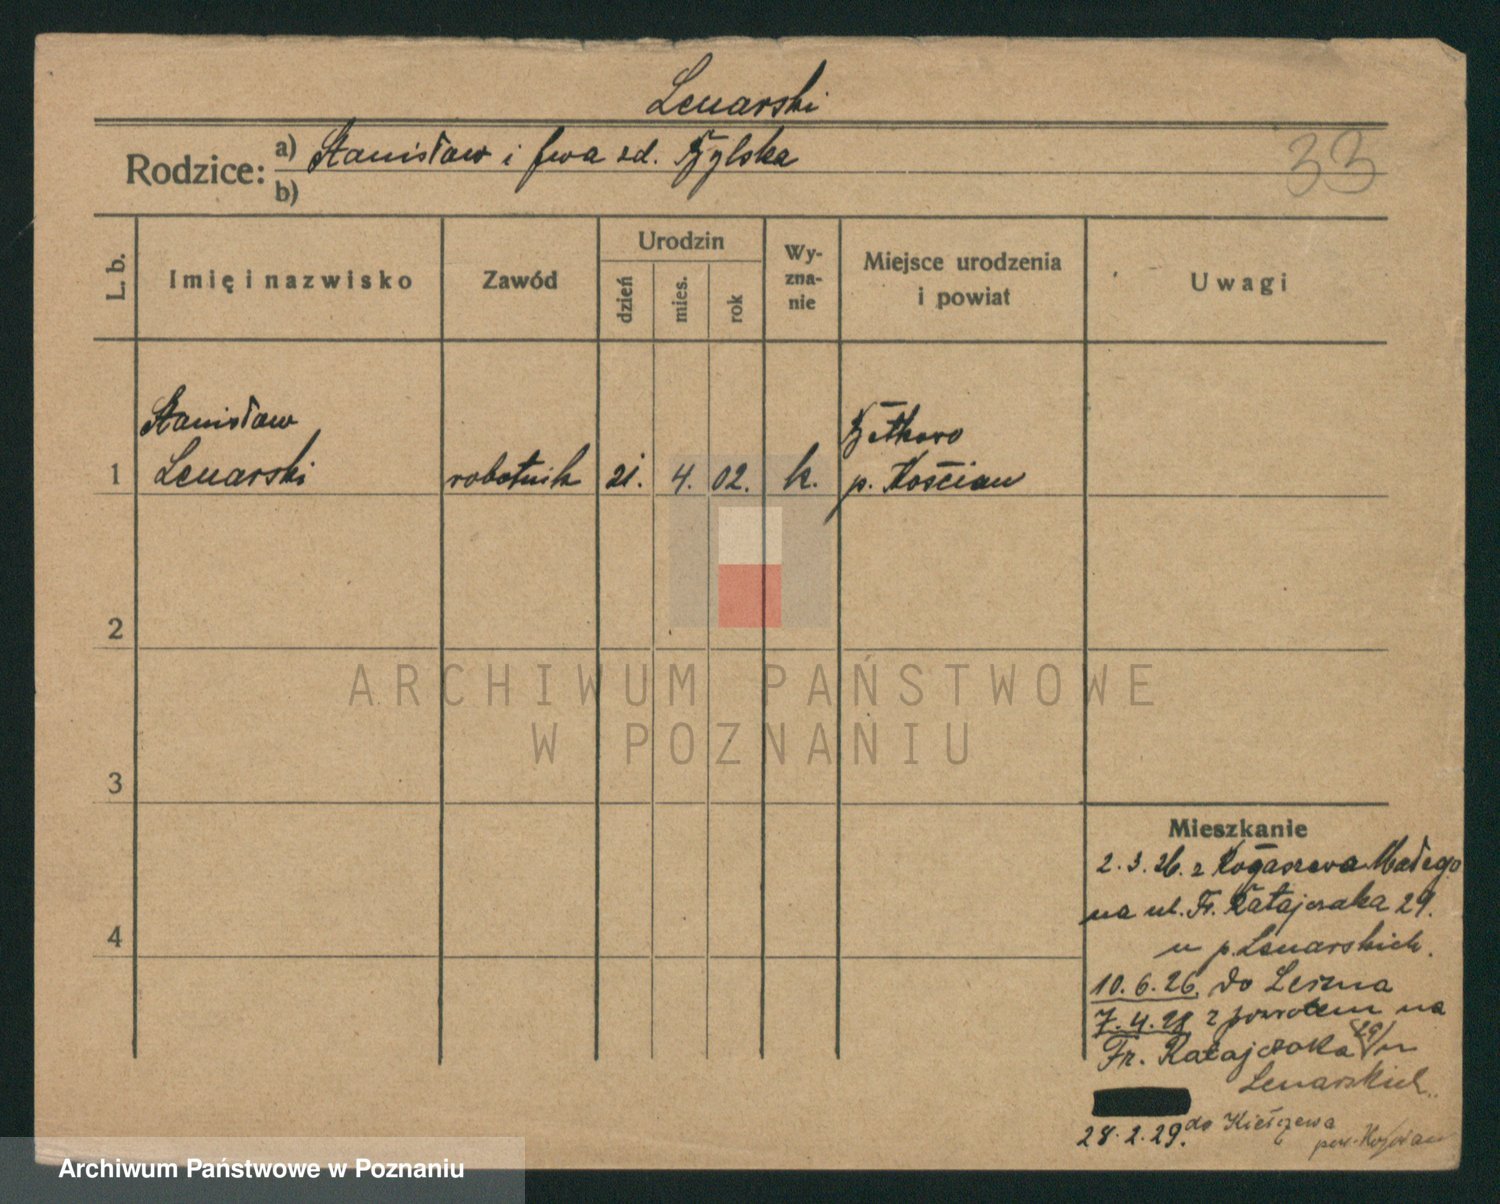 Lenarski
33
Rodzice: a) Stanisław i Ewa zd.
b)
L. b.
Imię i nazwisko
Zawód
Urodzin
dzień
mies.
rok
Wy-
zna-
nie
Miejsce urodzenia
i powiat
Uwagi
Stanisław
1 Lenarski robotnik 21. 4. 02. k.
p. Kościan
2
3
4
ARCHIWUM PAŃSTWOWE
W POZNANIU
Mieszkanie
2.3.26. z Rogaszewa Małego
na ul. Fr. Ratajczaka 29.
u p. Lenarskich.
10.6.26. do Leszna
7.4.28 z powrotem na
Fr. Ratajczaka 29/ u
Lenarskich.
28.2.29. do Kiełczewa
pow. Kościan
Archiwum Państwowe w Poznaniu